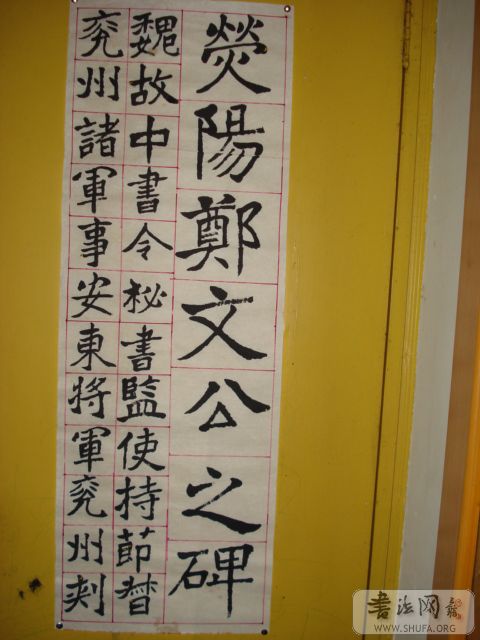 熒陽鄭文公之碑
魏故中書令秘書監使持節督
兗州諸軍事安東將軍兗州刺
書法网
WWW.SHUFA.ORG